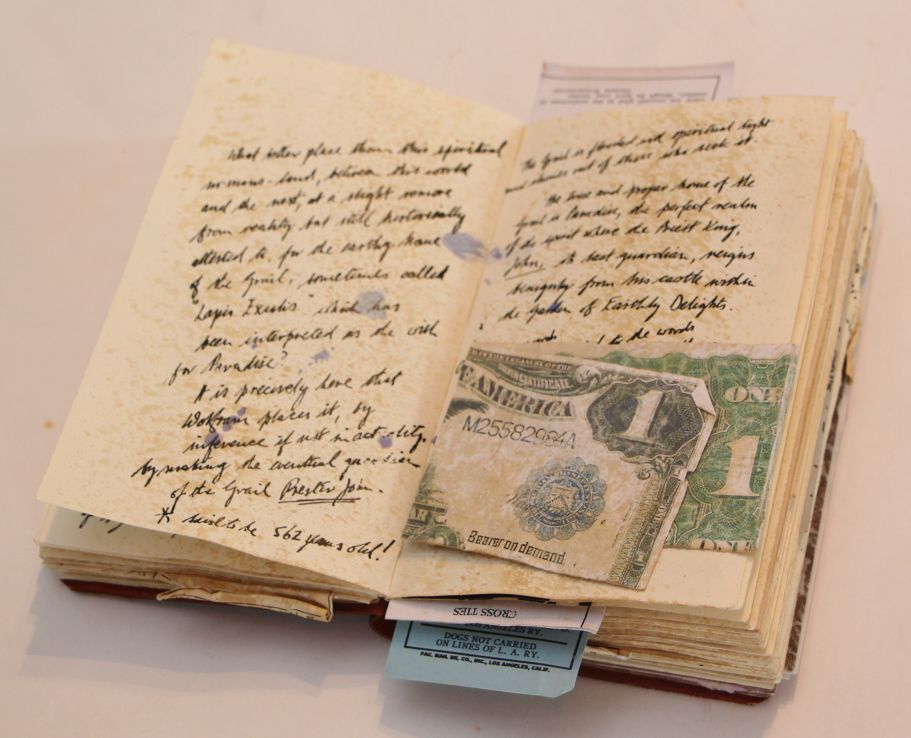 What better place than this spiritual
no-mans-land, between this world
and the next, at a slight remove
from reality but still historically
attested to, for the earthly home
of the Grail, sometimes called
"Lapis Exilis" which has
been interpreted as the wish
for Paradise?
It is precisely here that
Wolfram places it, by
inference if not in actuality,
by making the eventual guardian
of the Grail Prester John.
* said to be 562 years old!
The Grail is flooded with spiritual light
and shines out of those who seek it.
The true and proper home of the
Grail is Paradise, the perfect realm
of the spirit where the Priest King,
John, its last guardian, reigns
benignly from his castle within
the garden of Earthly Delights.
to the words
CERTIFICATE
AMERICA
1
M25582984A
Bearer on demand
ONE
1
ONE
CROSS TIES
LOS ANGELES RY.
DOGS NOT CARRIED
ON LINES OF L. A. RY.
PAC. MAN. BK. CO., INC., LOS ANGELES, CALIF.